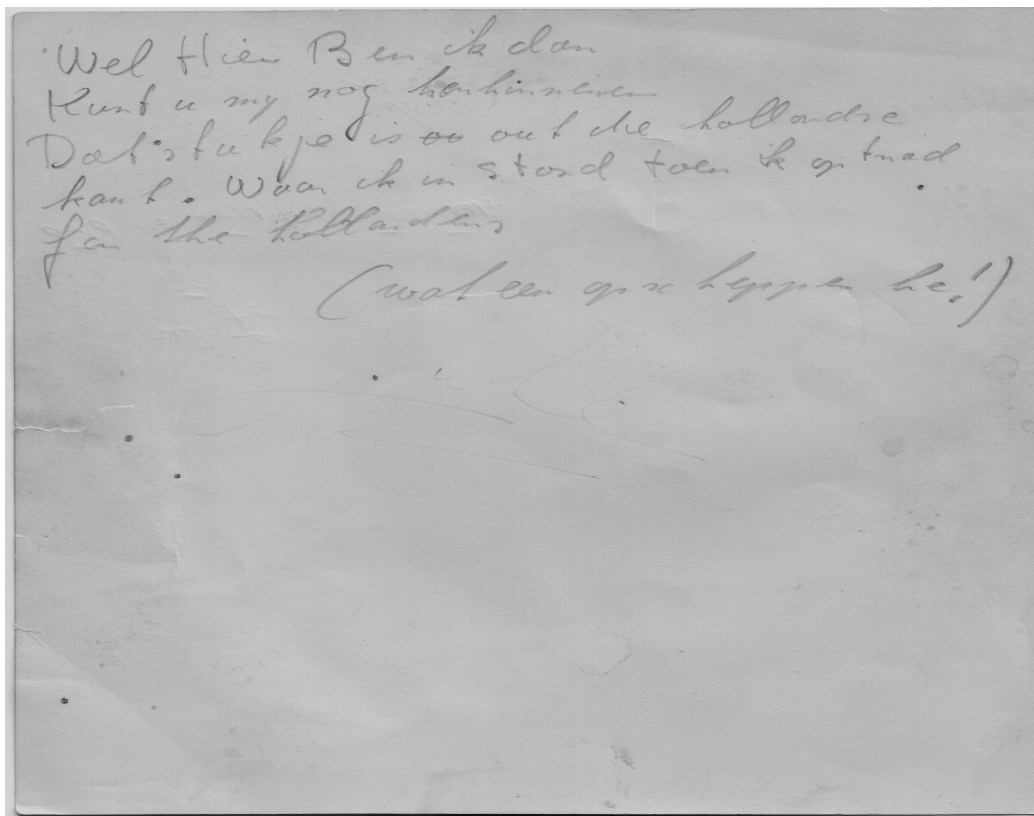 Wel Hier Ben ik dan
Kunt u my nog herhinneren
Dat stukje is out die hollandse
kant. Waar ik in stond toen ik op trad
for the hollanders
(wat een opschepper he!)